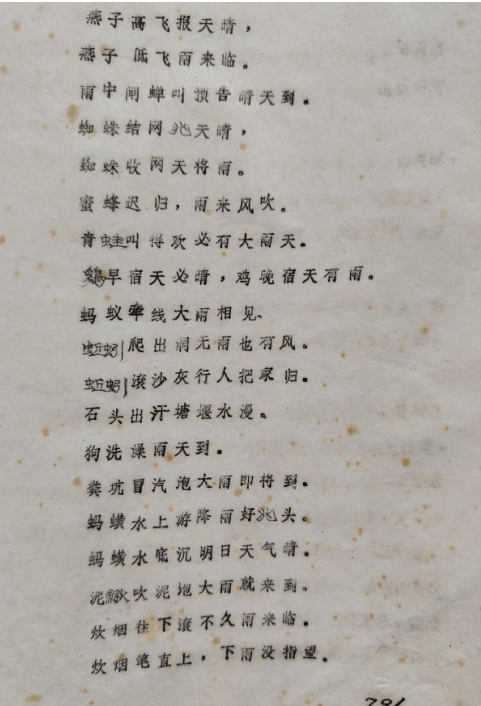 燕子高飞报天晴，
燕子低飞雨来临。
雨中闹蝉叫预告晴天到。
蜘蛛结网兆天晴，
蜘蛛收网天将雨。
蜜蜂迟归，雨来风吹。
青蛙叫得欢必有大雨天。
鷄早宿天必晴，鸡晚宿天有雨。
蚂蚁牵线大雨相见、
蚯蚓爬出洞无雨也有风。
蚯蚓滚沙灰行人把家归。
石头出汗塘堰水漫。
狗洗澡雨天到.
粪坑冒汽泡大雨即将到.
蚂蟥水上游降雨好兆头。
蚂蟥水底沉明日天气晴。
泥鳅吹泥炮大雨就来到.
炊烟往下滚不久雨来临.
炊烟笔直上，下雨没指望。